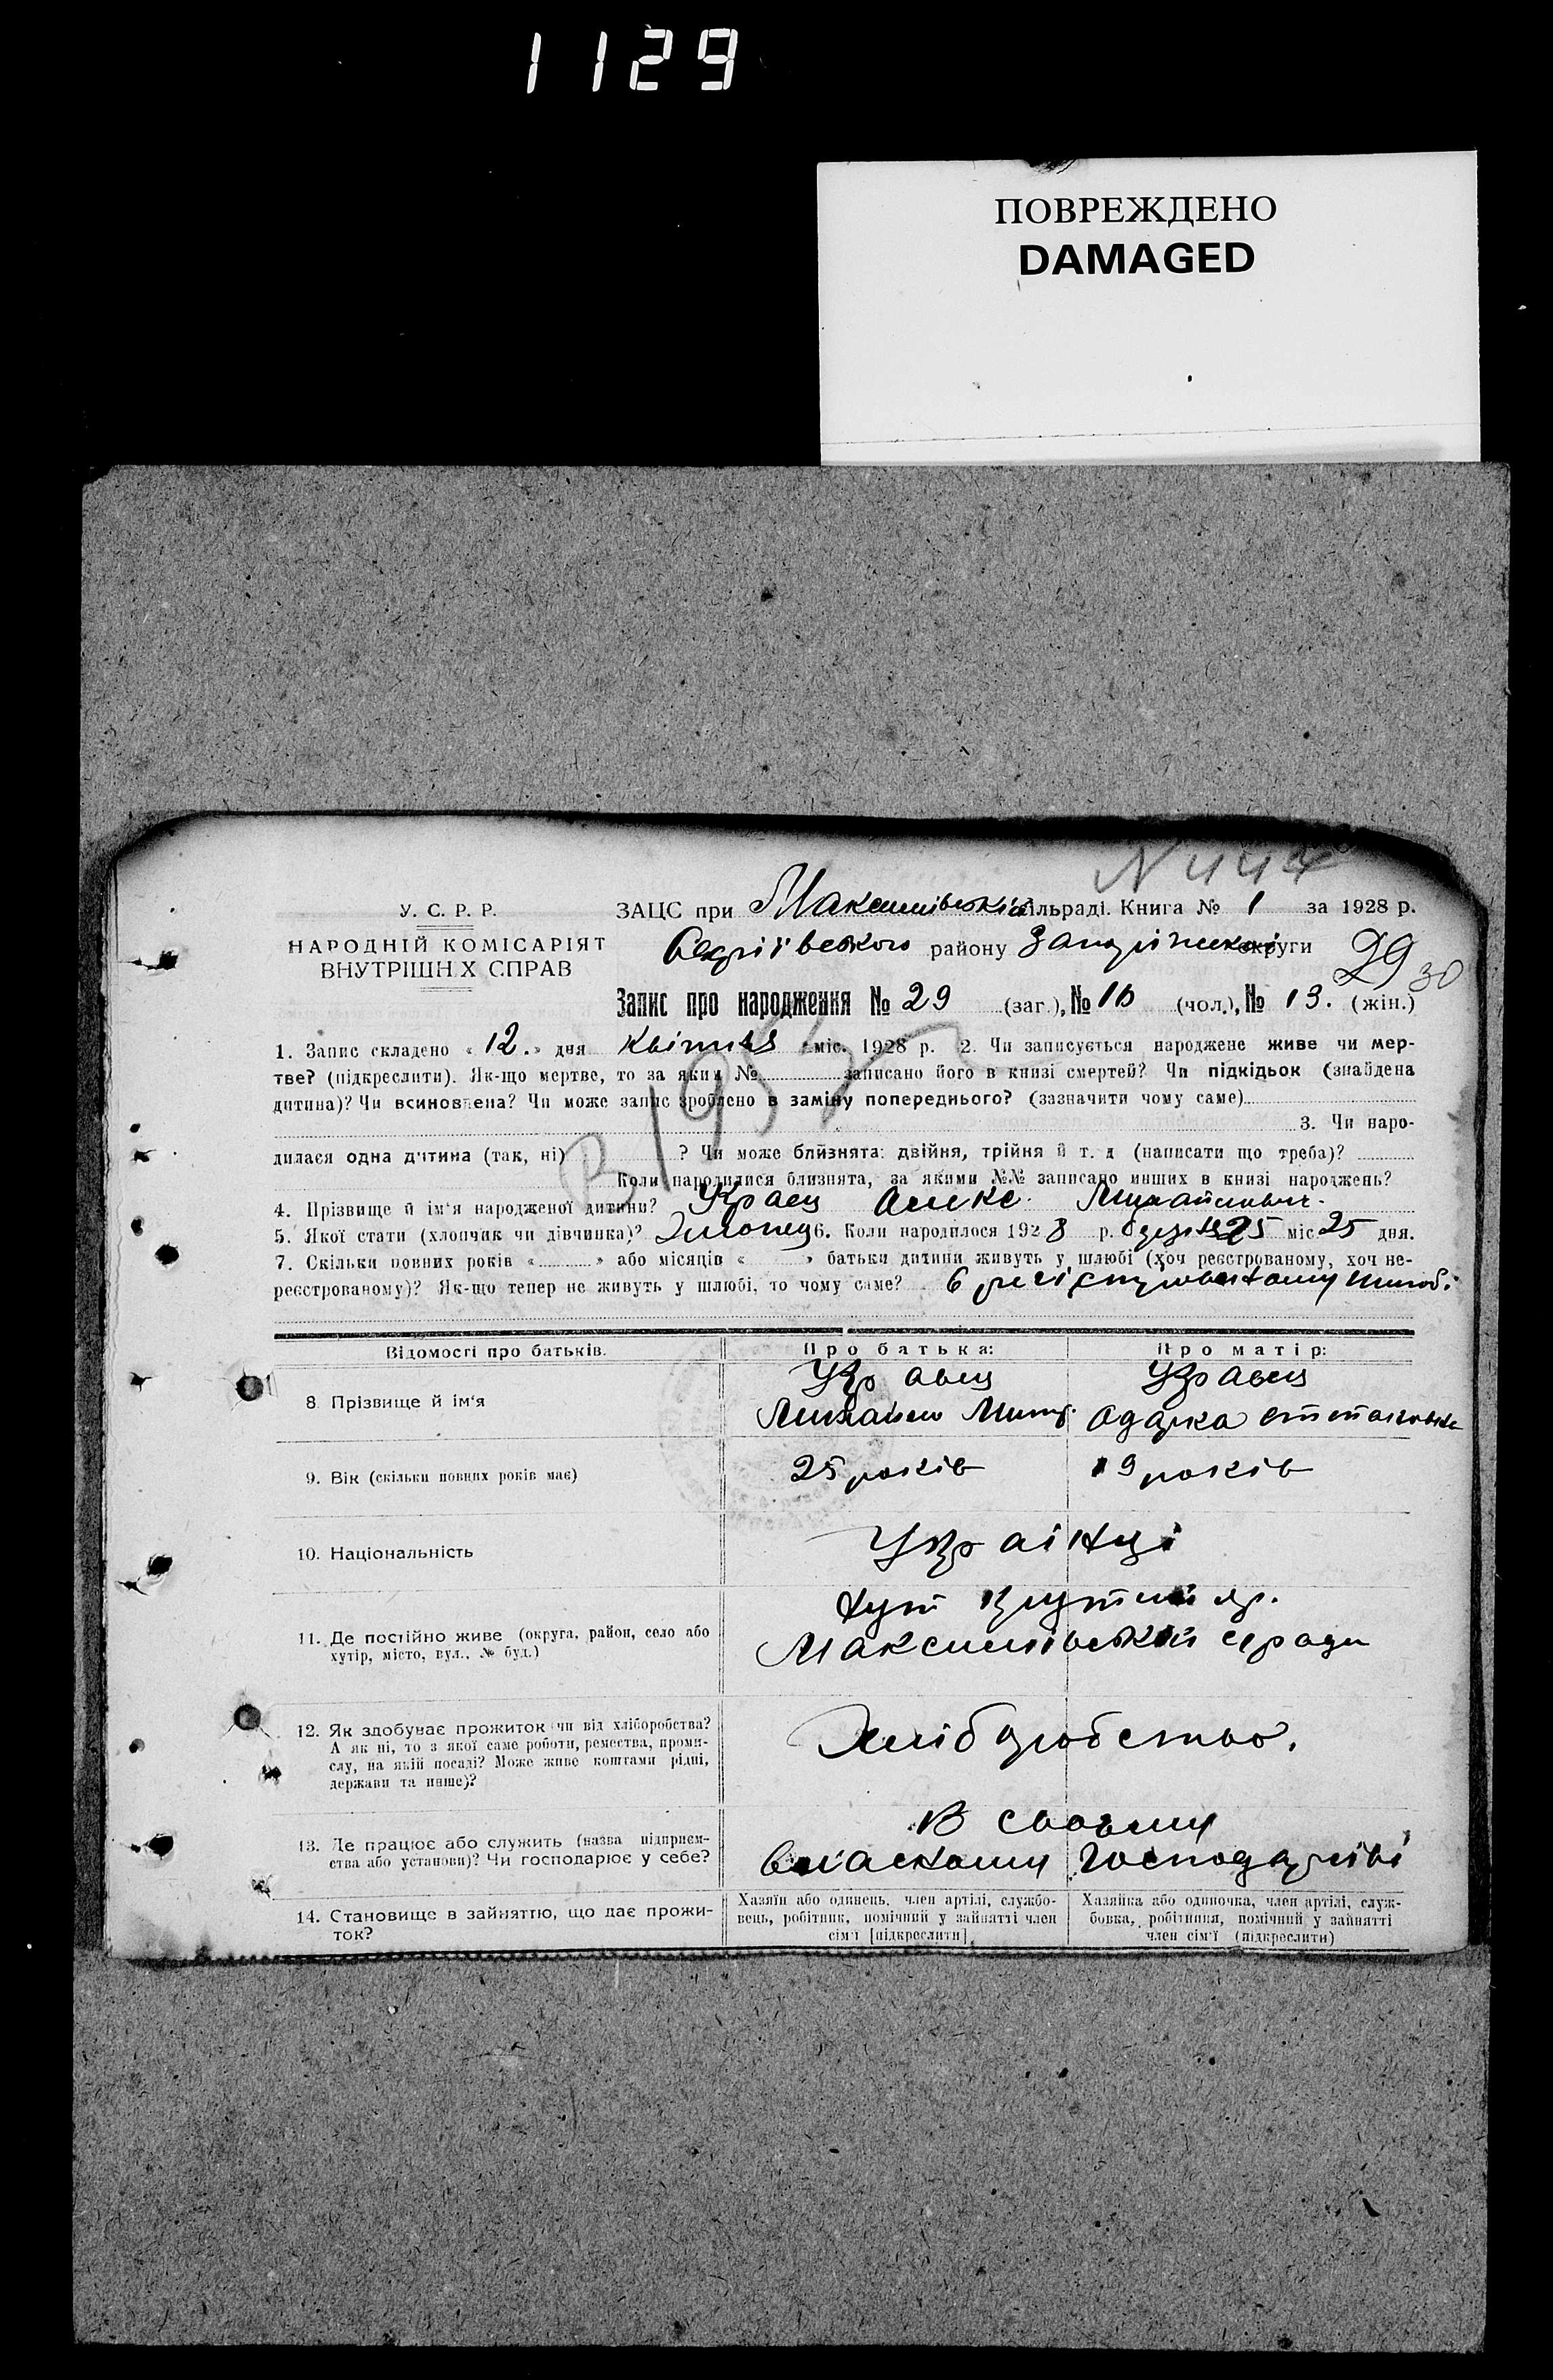 1129
ПОВРЕЖДЕНО
DAMAGED
N 447
У. С. Р. Р.
НАРОДНІЙ КОМІСАРІЯТ
ВНУТРІШН Х СПРАВ
ЗАЦС при Максимівській сільраді. Книга № 1 за 1928 р.
району Запоріжської округи
29 30
Запис про народження № 29 (заг.), № 16 (чол.), № 13. (жін.)
1. Запис складено « 12. » дня квітня міс. 1928 р. 2. Чи записується народжене живе чи мер-
тве? (підкреслити). Як-що мертве, то за яким № записано його в книзі смертей? Чи підкідьок (знайдена
дитина)? Чи всиновлена? Чи може запис зроблено в заміну попереднього? (зазначити чому саме)
3. Чи наро-
дилася одна дитина (так, ні) ? Чи може близнята: двійня, трійня й т. д (написати що треба)?
Коли народилися близнята, за якими №№ записано инших в книзі народжень?
4. Прізвище й ім'я народженої дитини? Кравец Алекс. Михайлович.
5. Якої стати (хлопчик чи дівчинка)? Хлопец 6. Коли народилося 1928 р. міс 25 дня.
7. Скільки повних років « » або місяців « » батьки дитини живуть у шлюбі (хоч реєстрованому, хоч не-
реєстрованому)? Як-що тепер не живуть у шлюбі, то чому саме? В шлюбі
Відомості про батьків.
Про батька:
Про матір:
8. Прізвище й ім'я
Кравец
Михайло
Кравец
Одарка
9. Вік (скільки повних років має)
25 років
19 років
10. Національність
Українці
11. Де постійно живе (округа, район, село або
хутір, місто, вул., № буд.)
хут Крутий яр.
Максимівській с ради
12. Як здобуває прожиток чи від хліборобства?
А як ні, то з якої саме роботи, ремества, проми-
слу, на якій посаді? Може живе коштами рідні,
держави та инше)?
Хліборобство.
13. Де працює або служить (назва підприєм-
ства або установи)? Чи господарює у себе?
В своему
власному господарстві
14. Становище в зайняттю, що дає прожи-
ток?
Хазяїн або одинець, член артілі, службо-
вець, робітник, помічний у зайнятті член
сім'ї [підкреслити]
Хазяйка або одиночка, член артілі, служ-
бовка, робітниця, помічний у зайнятті
член сім'ї (підкреслити)